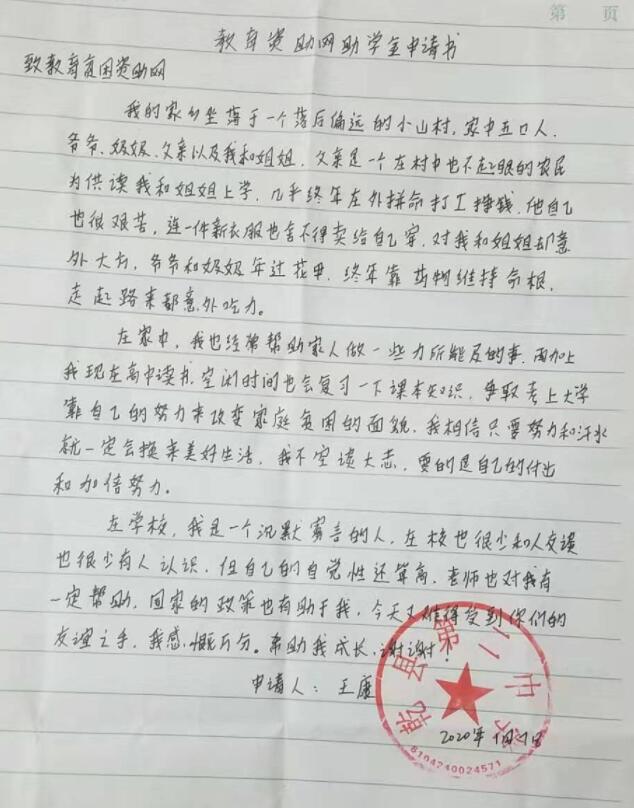 第 页
教育资助网助学金申请书
致教育贫困资助网
我的家乡坐落于一个落后偏远的小山村，家中五口人.
爷爷、奶奶、父亲以及我和姐姐，父亲是一个在村中也不起眼的农民
为供读我和姐姐上学，几乎终年在外拼命打工挣钱，他自己
也很艰苦，连一件新衣服也舍不得卖给自己穿，对我和姐姐却意
外大方，爷爷和奶奶年过花甲，终年靠药物维持命根，
走起路来都意外吃力。
在家中，我也经常帮助家人做一些力所能及的事，再加上
我现在高中读书，空闲时间也会复习一下课本知识，争取考上大学
靠自己的努力来改变家庭贫困的面貌，我相信只要努力和汗水
就一定会换来美好生活，我不空谈大志，要的是自己的付出
和加倍努力。
在学校，我是一个沉默寡言的人，在校也很少和人交谈
也很少有人认识，但自己的自觉性还算高，老师也对我有
一定帮助，国家的政策也有助于我，今天又难得受到你们的
友谊之手，我感慨万分。帮助我成长，谢谢！
申请人：王
乾县第二中学
2020年1月 日
6104240024571